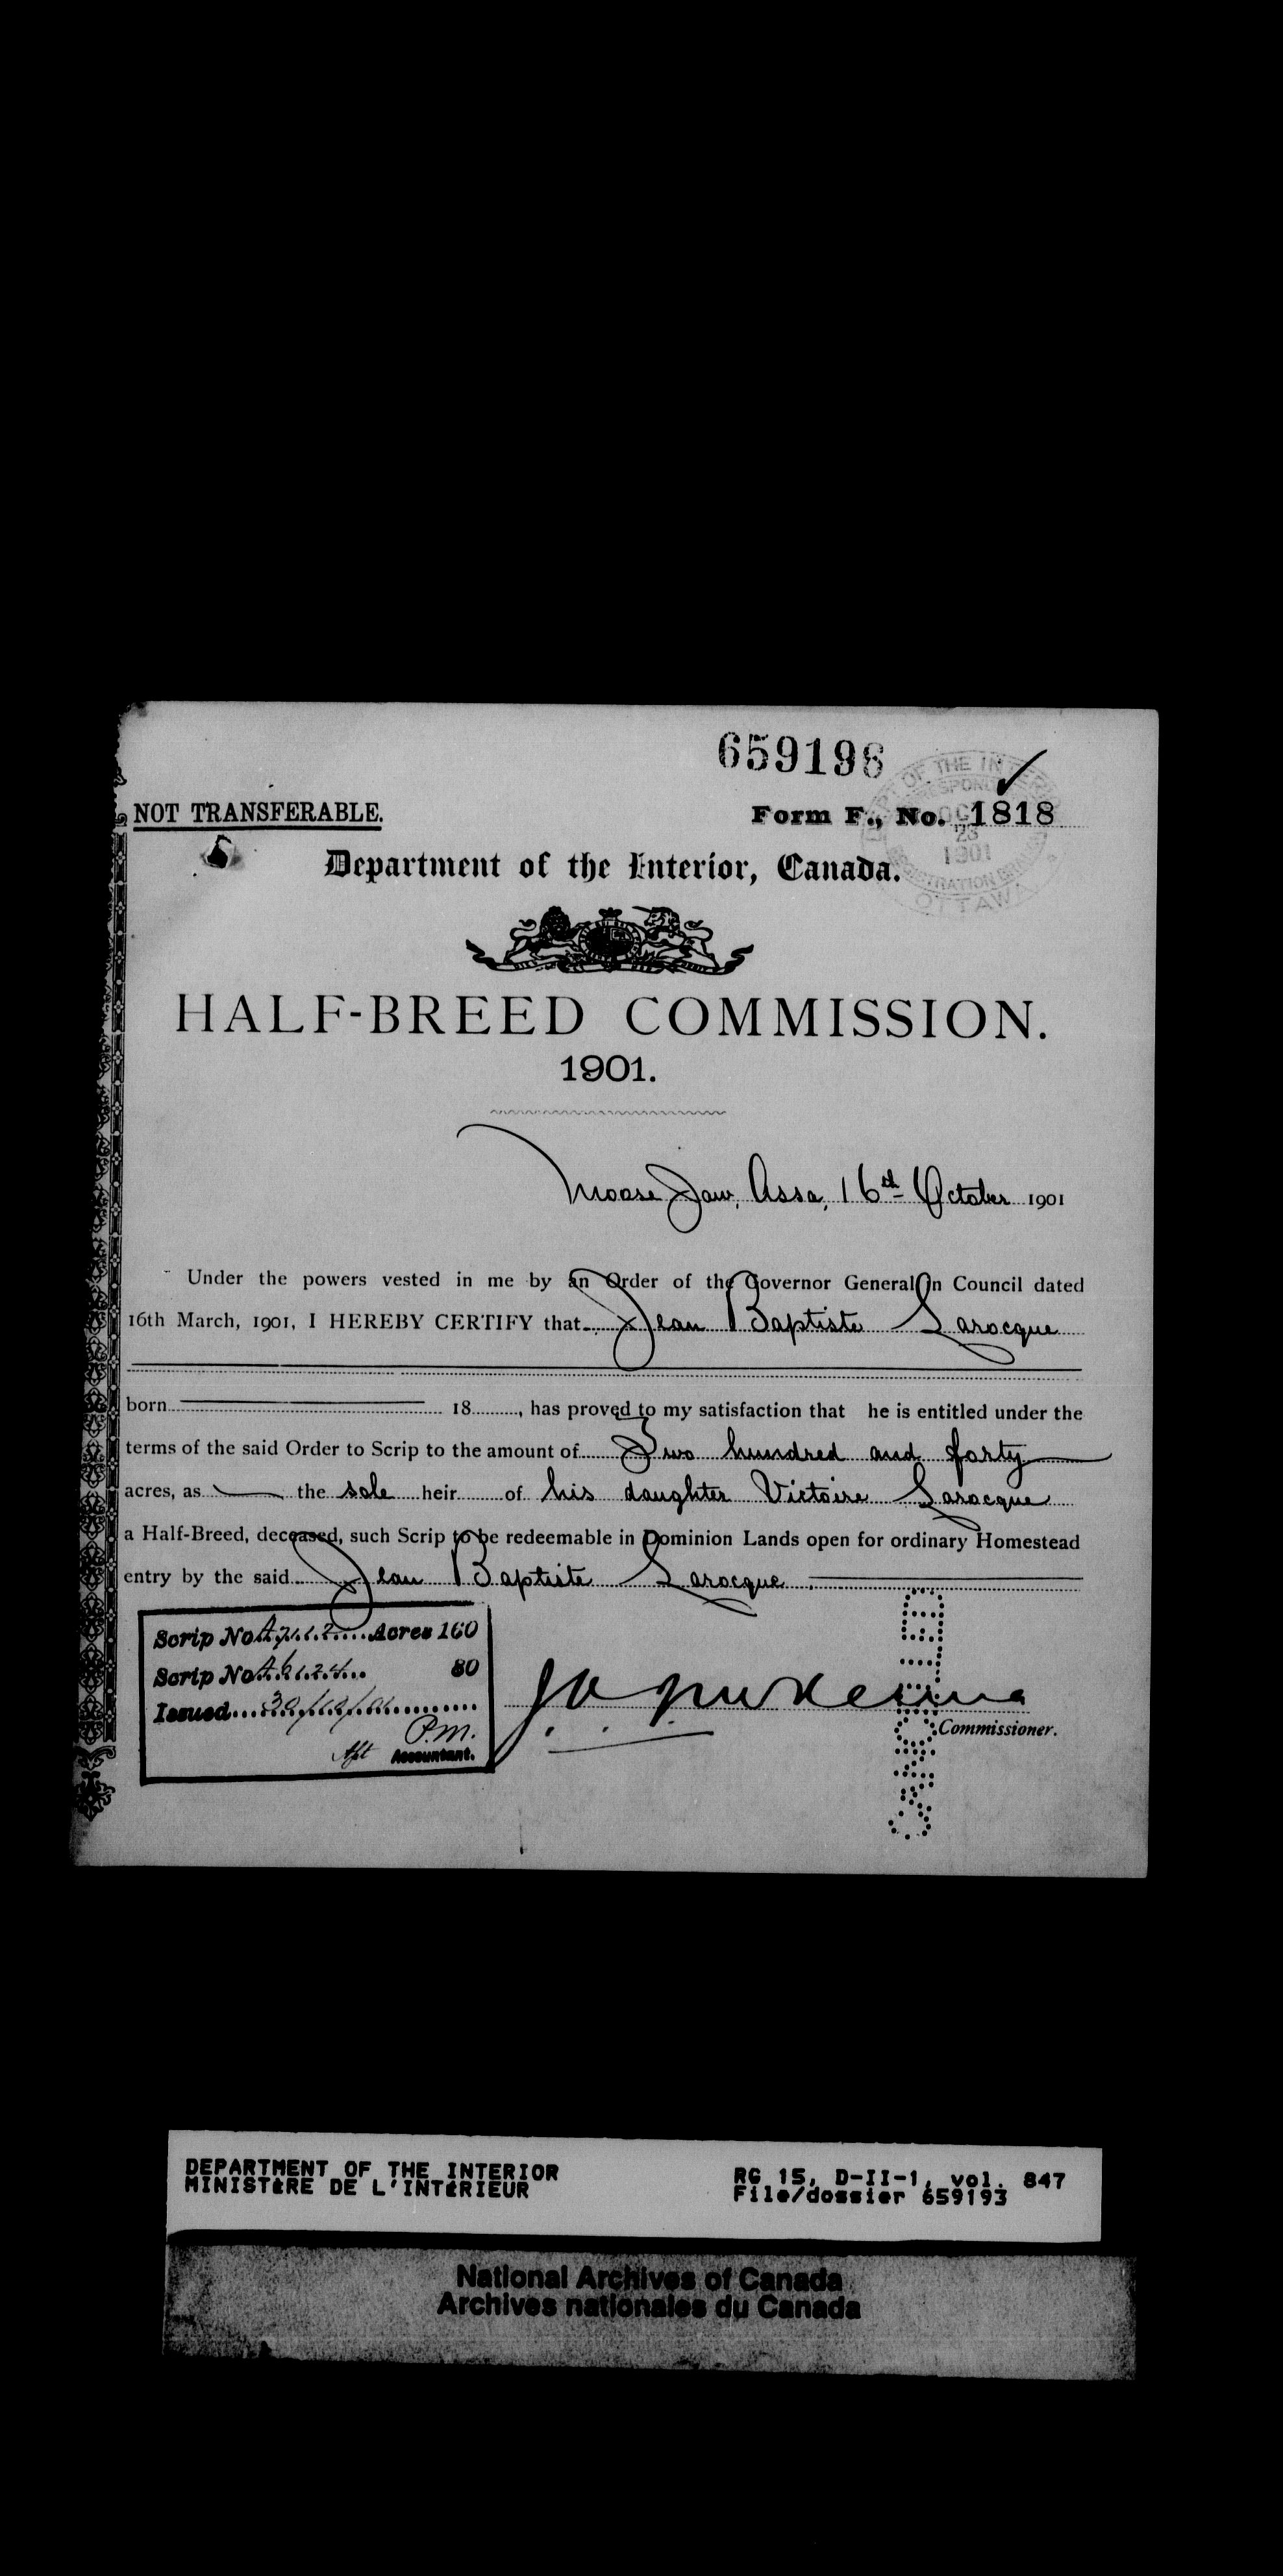 659193
NOT TRANSFERABLE.
Form F., No. 1818
DEPT OF THE INTERIOR
OCT 23 1901
REGISTRATION BRANCH
OTTAWA
Department of the Interior, Canada.
HALF-BREED COMMISSION.
1901.
Moose Jaw, Assa, 16th October 1901
Under the powers vested in me by an Order of the Governor General in Council dated
16th March, 1901, I HEREBY CERTIFY that Jean Baptiste Larocque
born 18 , has proved to my satisfaction that he is entitled under the
terms of the said Order to Scrip to the amount of Two hundred and forty
acres, as the sole heir of his daughter Victoire Larocque
a Half-Breed, deceased, such Scrip to be redeemable in Dominion Lands open for ordinary Homestead
entry by the said Jean Baptiste Larocque
Scrip No. Acres 160
Scrip No. 80
Issued 30/10/01
P.M.
Accountant.
Commissioner.
DEPARTMENT OF THE INTERIOR
MINISTÈRE DE L'INTÉRIEUR
RG 15, D-II-1, vol. 847
File/dossier 659193
National Archives of Canada
Archives nationales du Canada